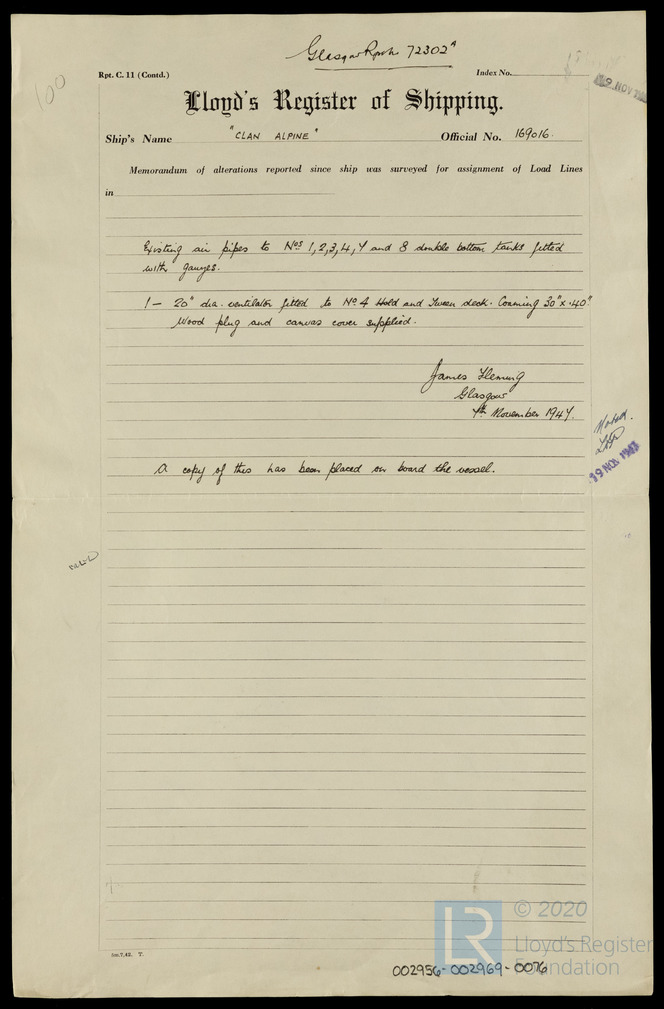 Glasgow Rpt No 72302A
100
Rpt. C. 11 (Contd.)
Index No.
Lloyd's Register of Shipping.
Ship's Name "CLAN ALPINE" Official No. 169016.
Memorandum of alterations reported since ship was surveyed for assignment of Load Lines
in
Existing air pipes to Nos 1,2,3,4,7 and 8 double bottom tanks fitted
with gauzes.
1 - 20" dia. ventilator fitted to No 4 Hold and Tween deck. Coaming 30" x .40".
Wood plug and canvas cover supplied.
James Fleming
Glasgow
7th November 1947.
Noted.
19 NOV 1947
A copy of this has been placed on board the vessel.
5m.7,42. T.
© 2020
Lloyd's Register
Foundation
002956-002969-0076